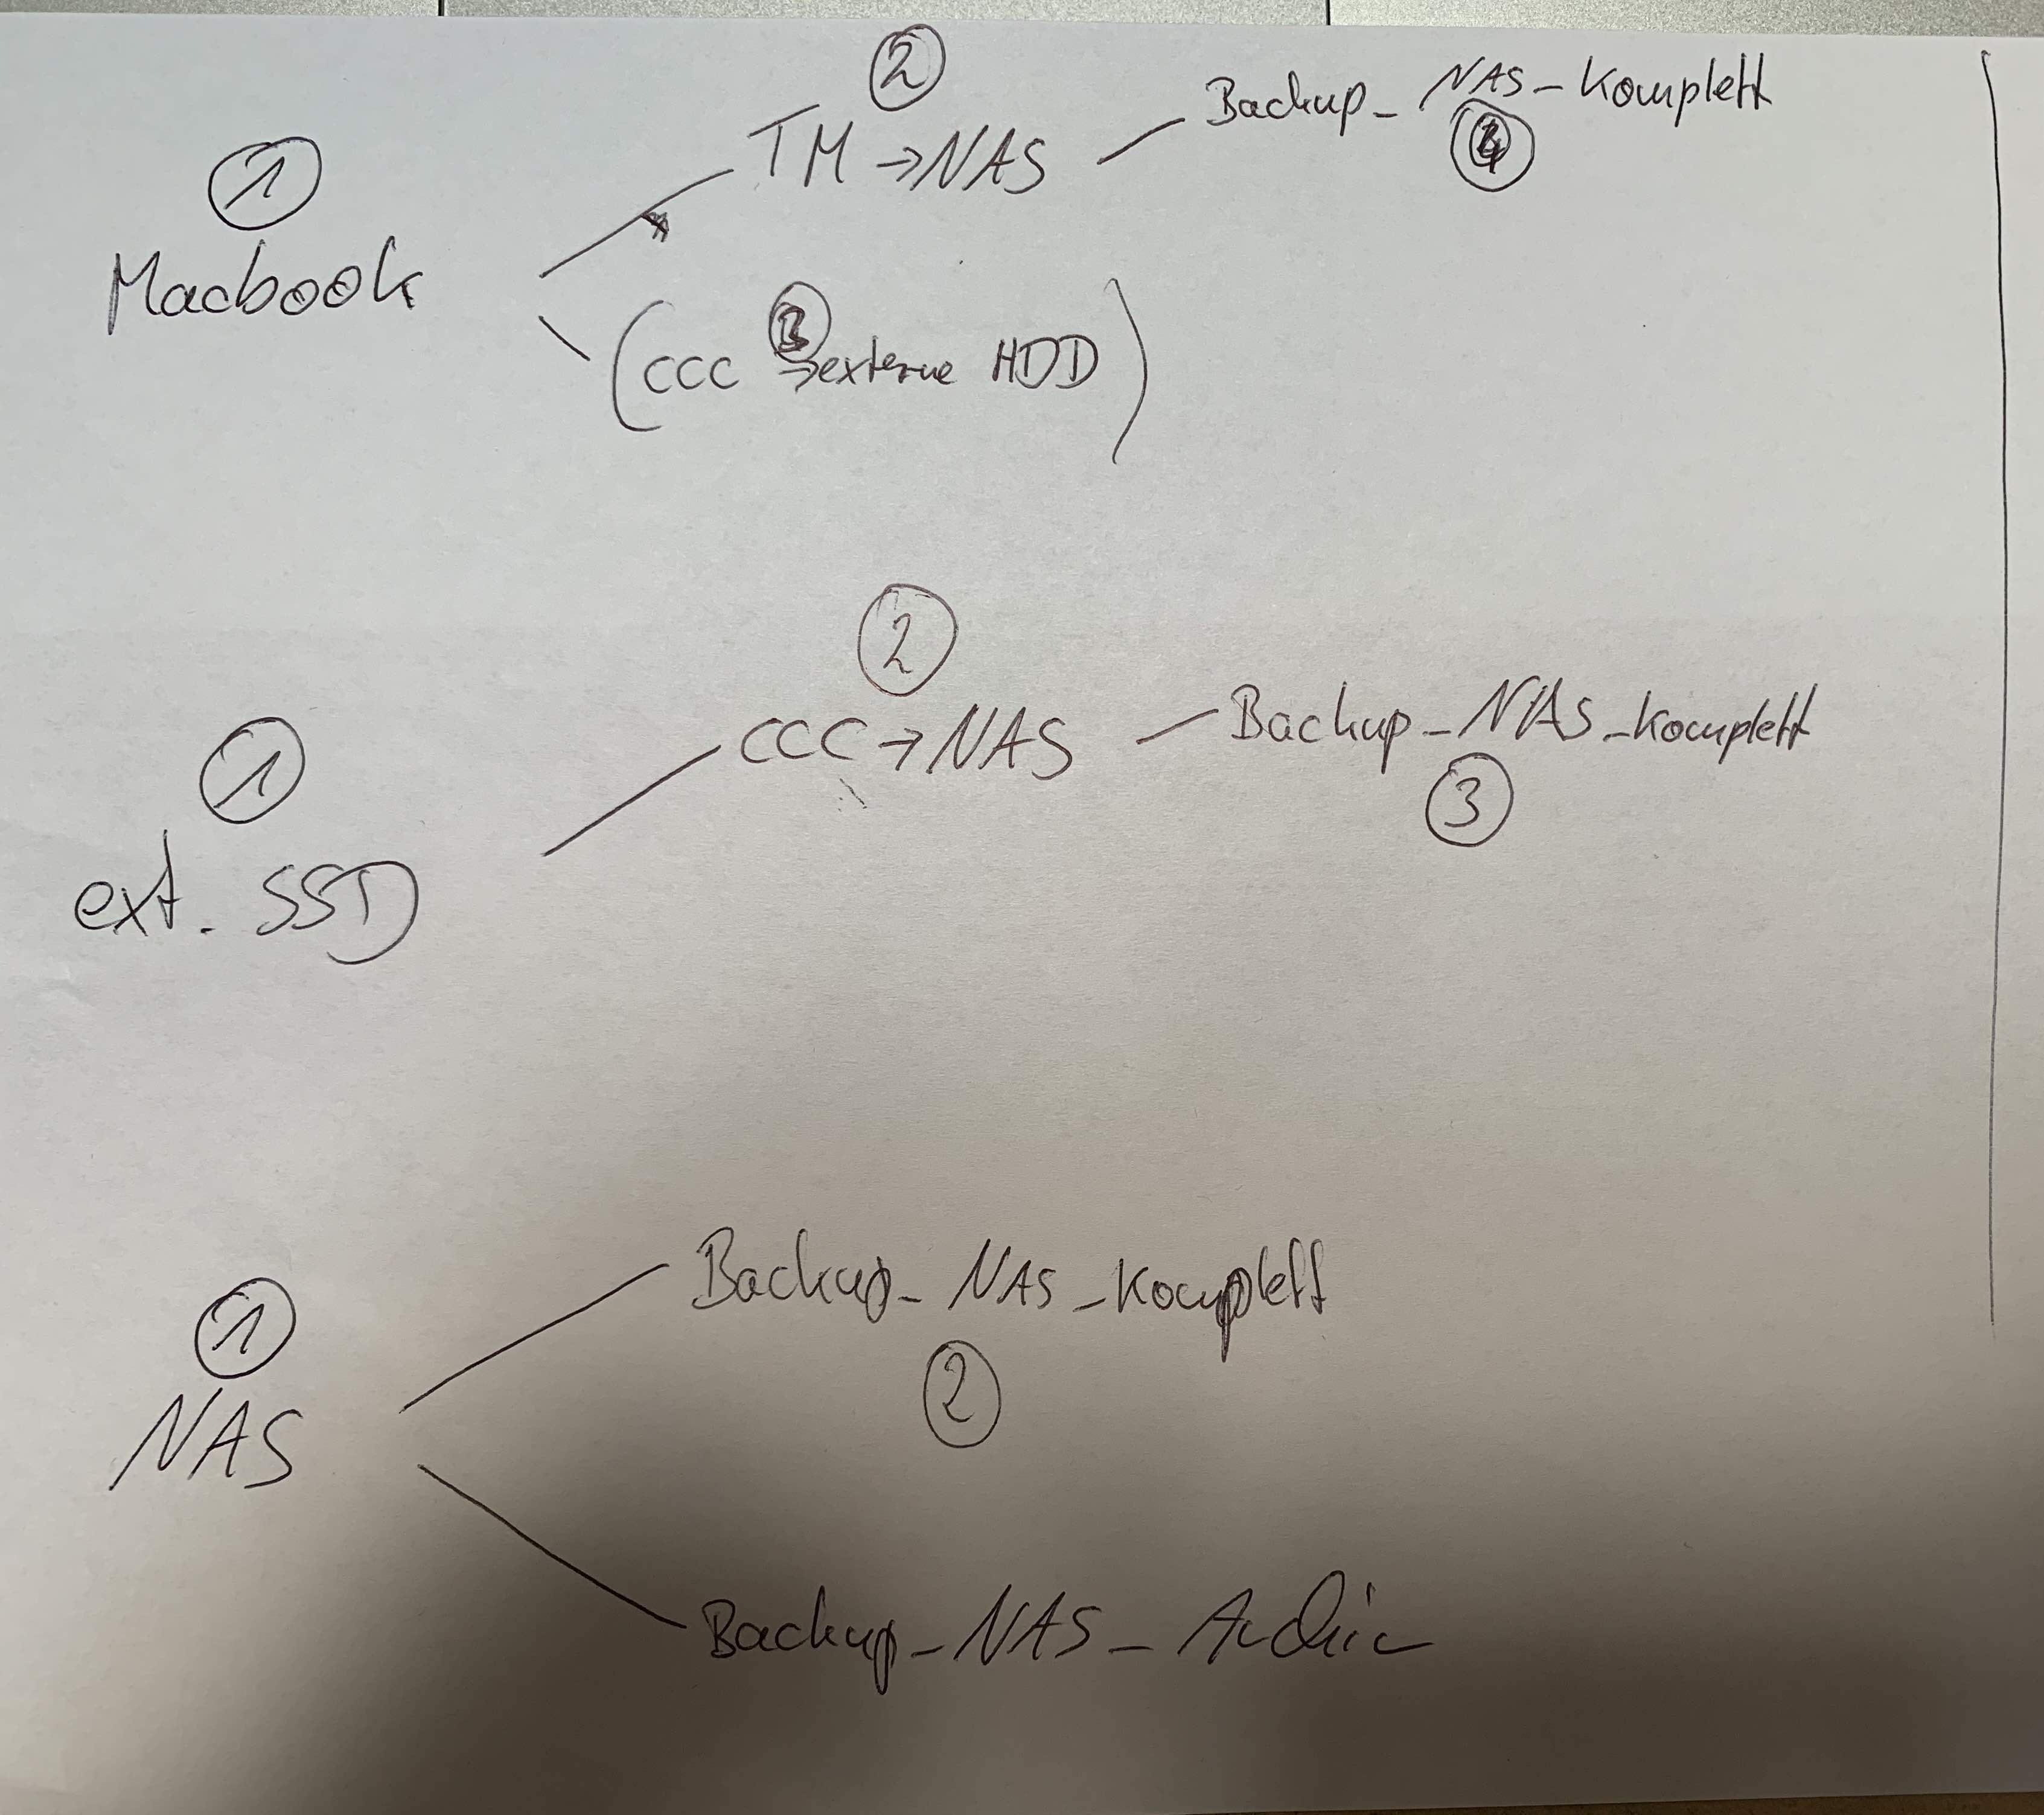 2
TM → NAS
Backup_NAS_Komplett
4
1
Macbook
3
(CCC → externe HDD)
2
CCC → NAS
Backup_NAS_Komplett
3
1
ext. SSD
Backup_NAS_Komplett
2
1
NAS
Backup_NAS_